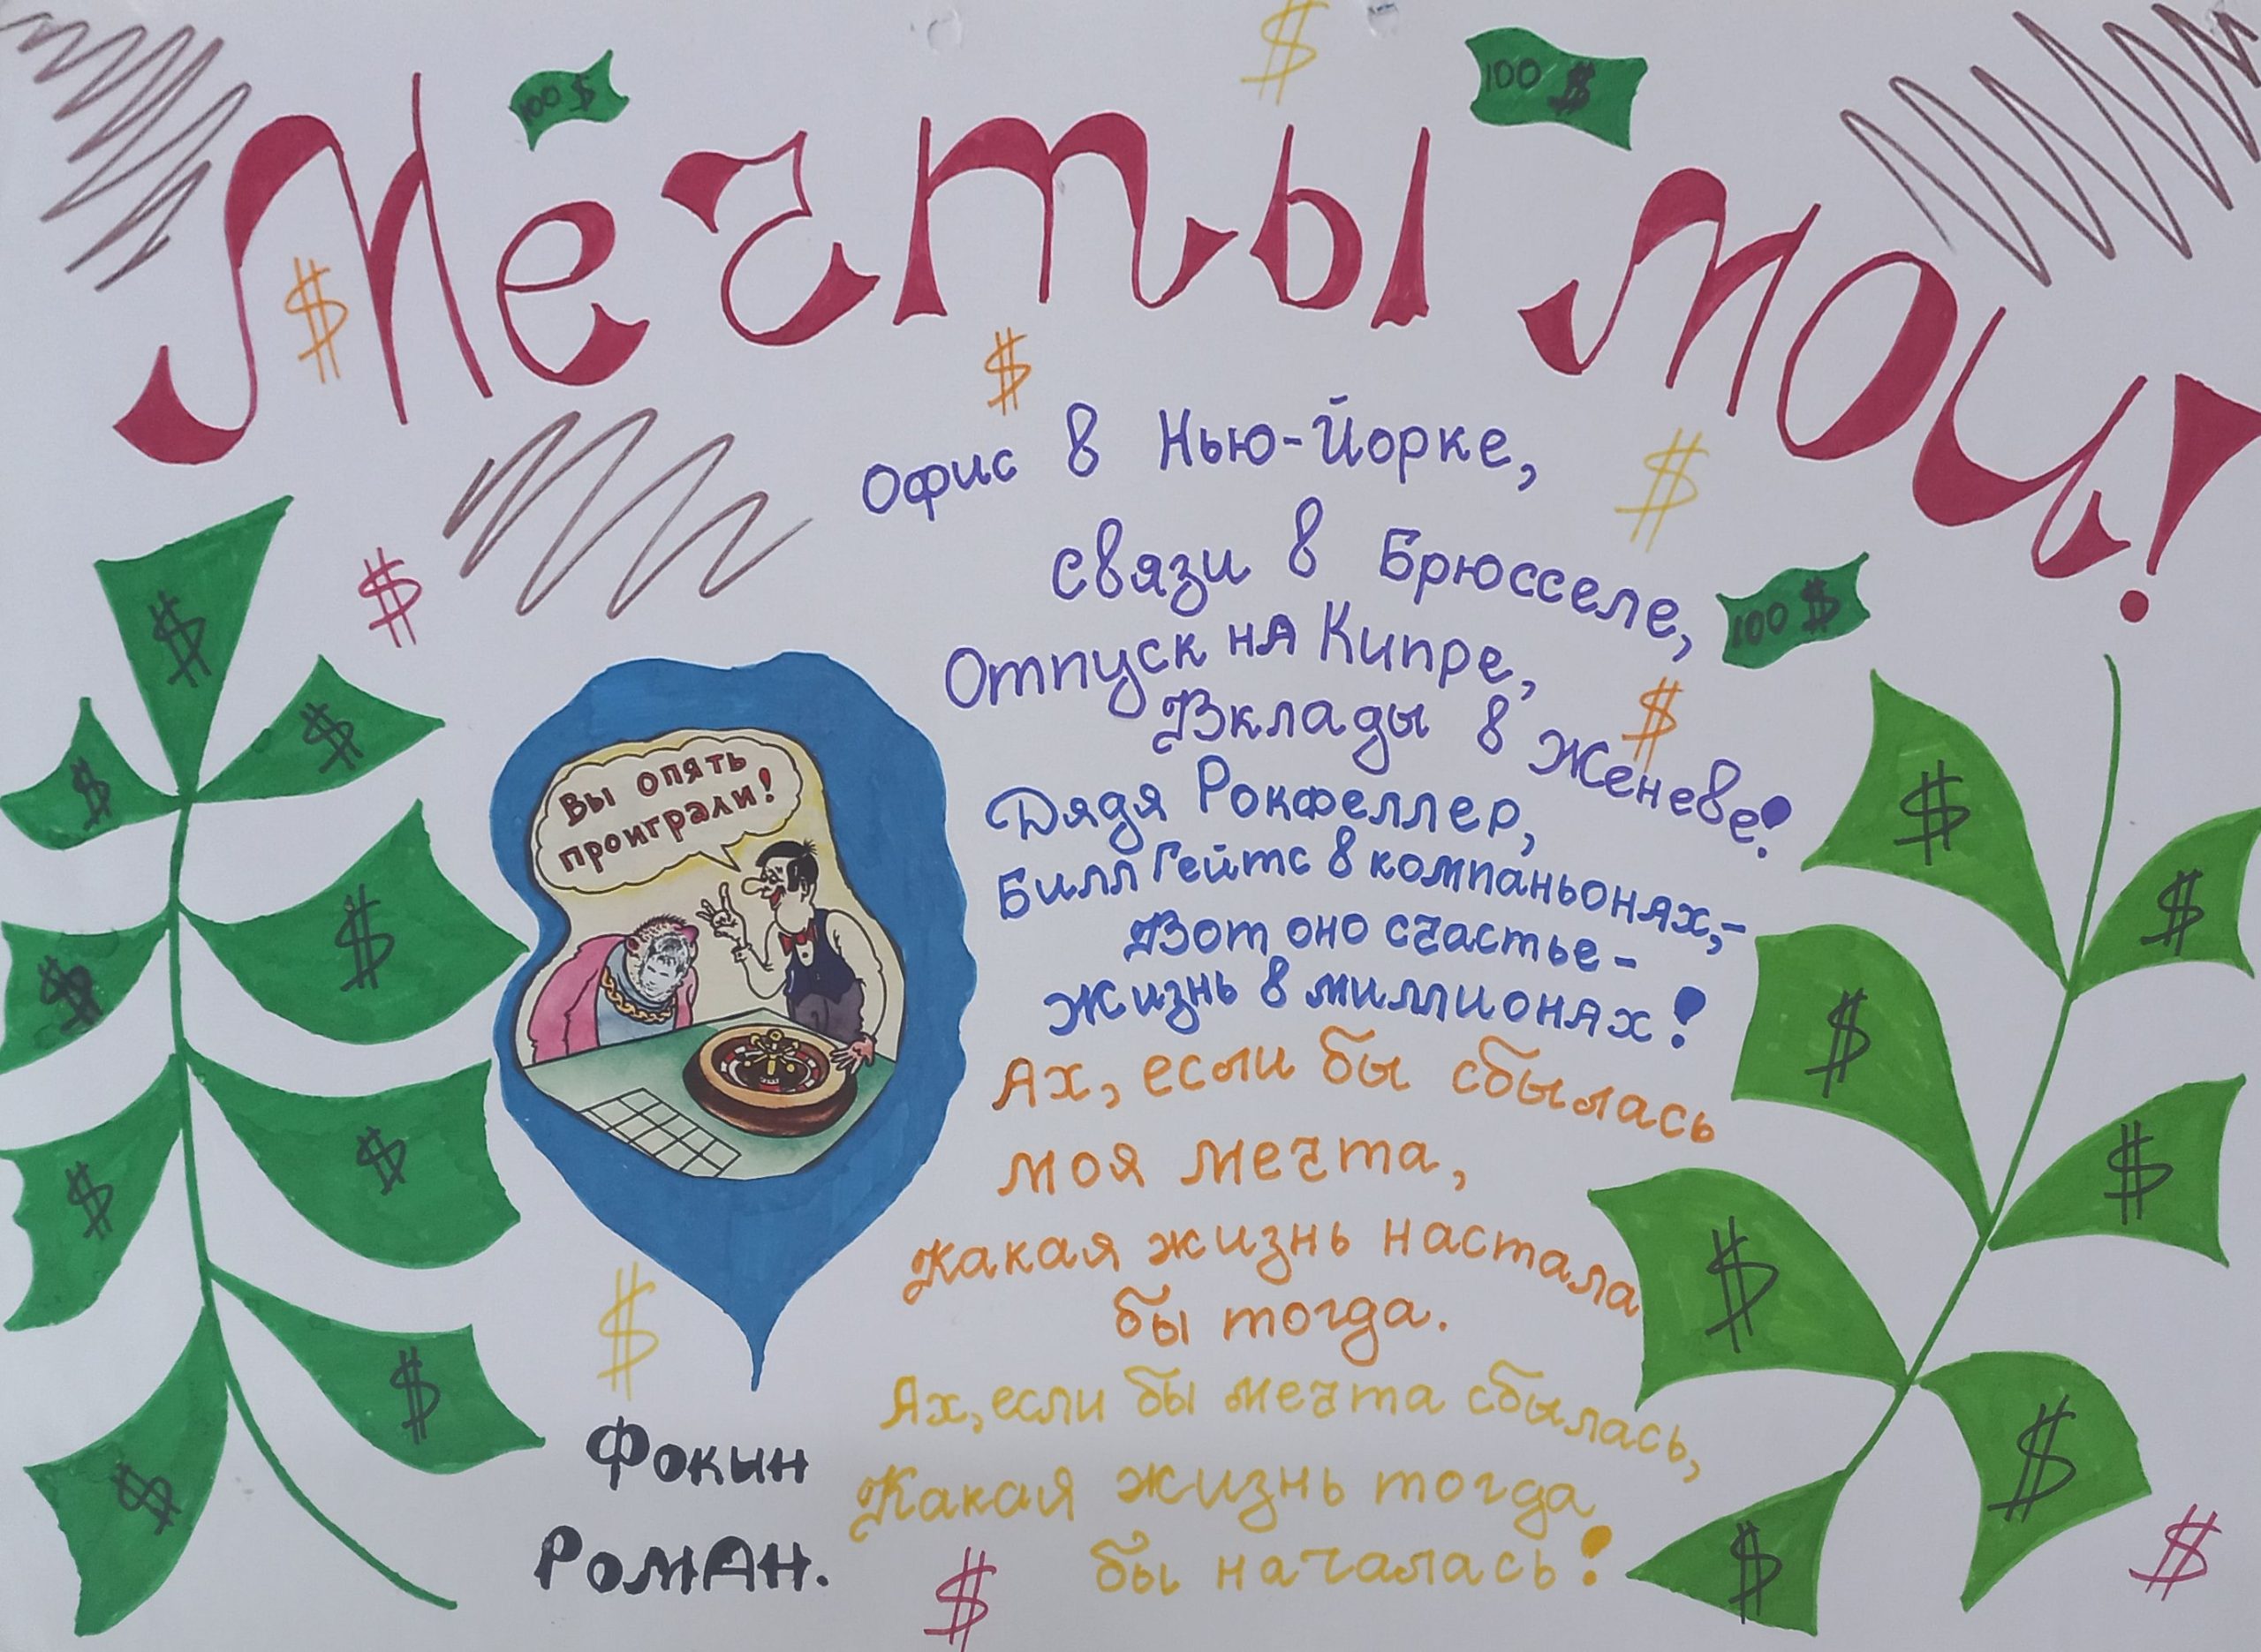 Мечты мои!
100 $
100 $
Офис в Нью-Йорке,
связи в Брюсселе,
100 $
Отпуск на Кипре,
Вклады в Женеве!
Дядя Рокфеллер,
Билл Гейтс в компаньонах,-
Вот оно счастье-
жизнь в миллионах!
Ах, если бы сбылась
моя мечта,
Какая жизнь настала
бы тогда.
Ах, если бы мечта сбылась,
Какая жизнь тогда
бы началась!
Вы опять
проиграли!
Фокин
Роман.